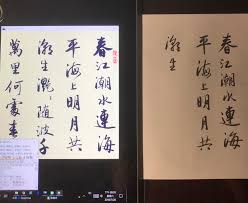 春江潮水連海
平海上明月共
潮生灩〻隨波千
萬里何處春
春江潮水連海
平海上明月共
潮生